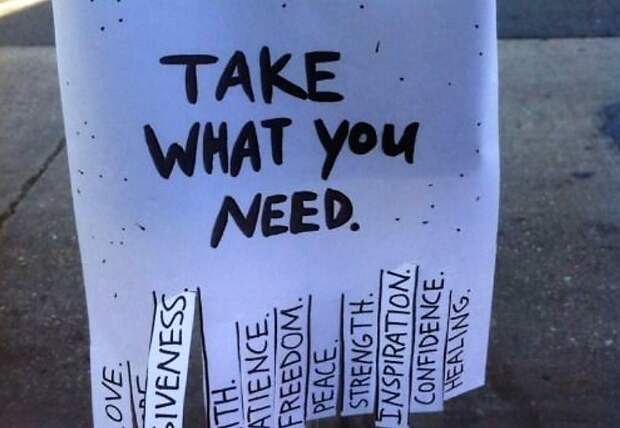 TAKE
WHAT YOU
NEED.
OVE.
IVENESS.
TH.
ATIENCE.
FREEDOM.
PEACE.
STRENGTH.
INSPIRATION.
CONFIDENCE.
HEALING.